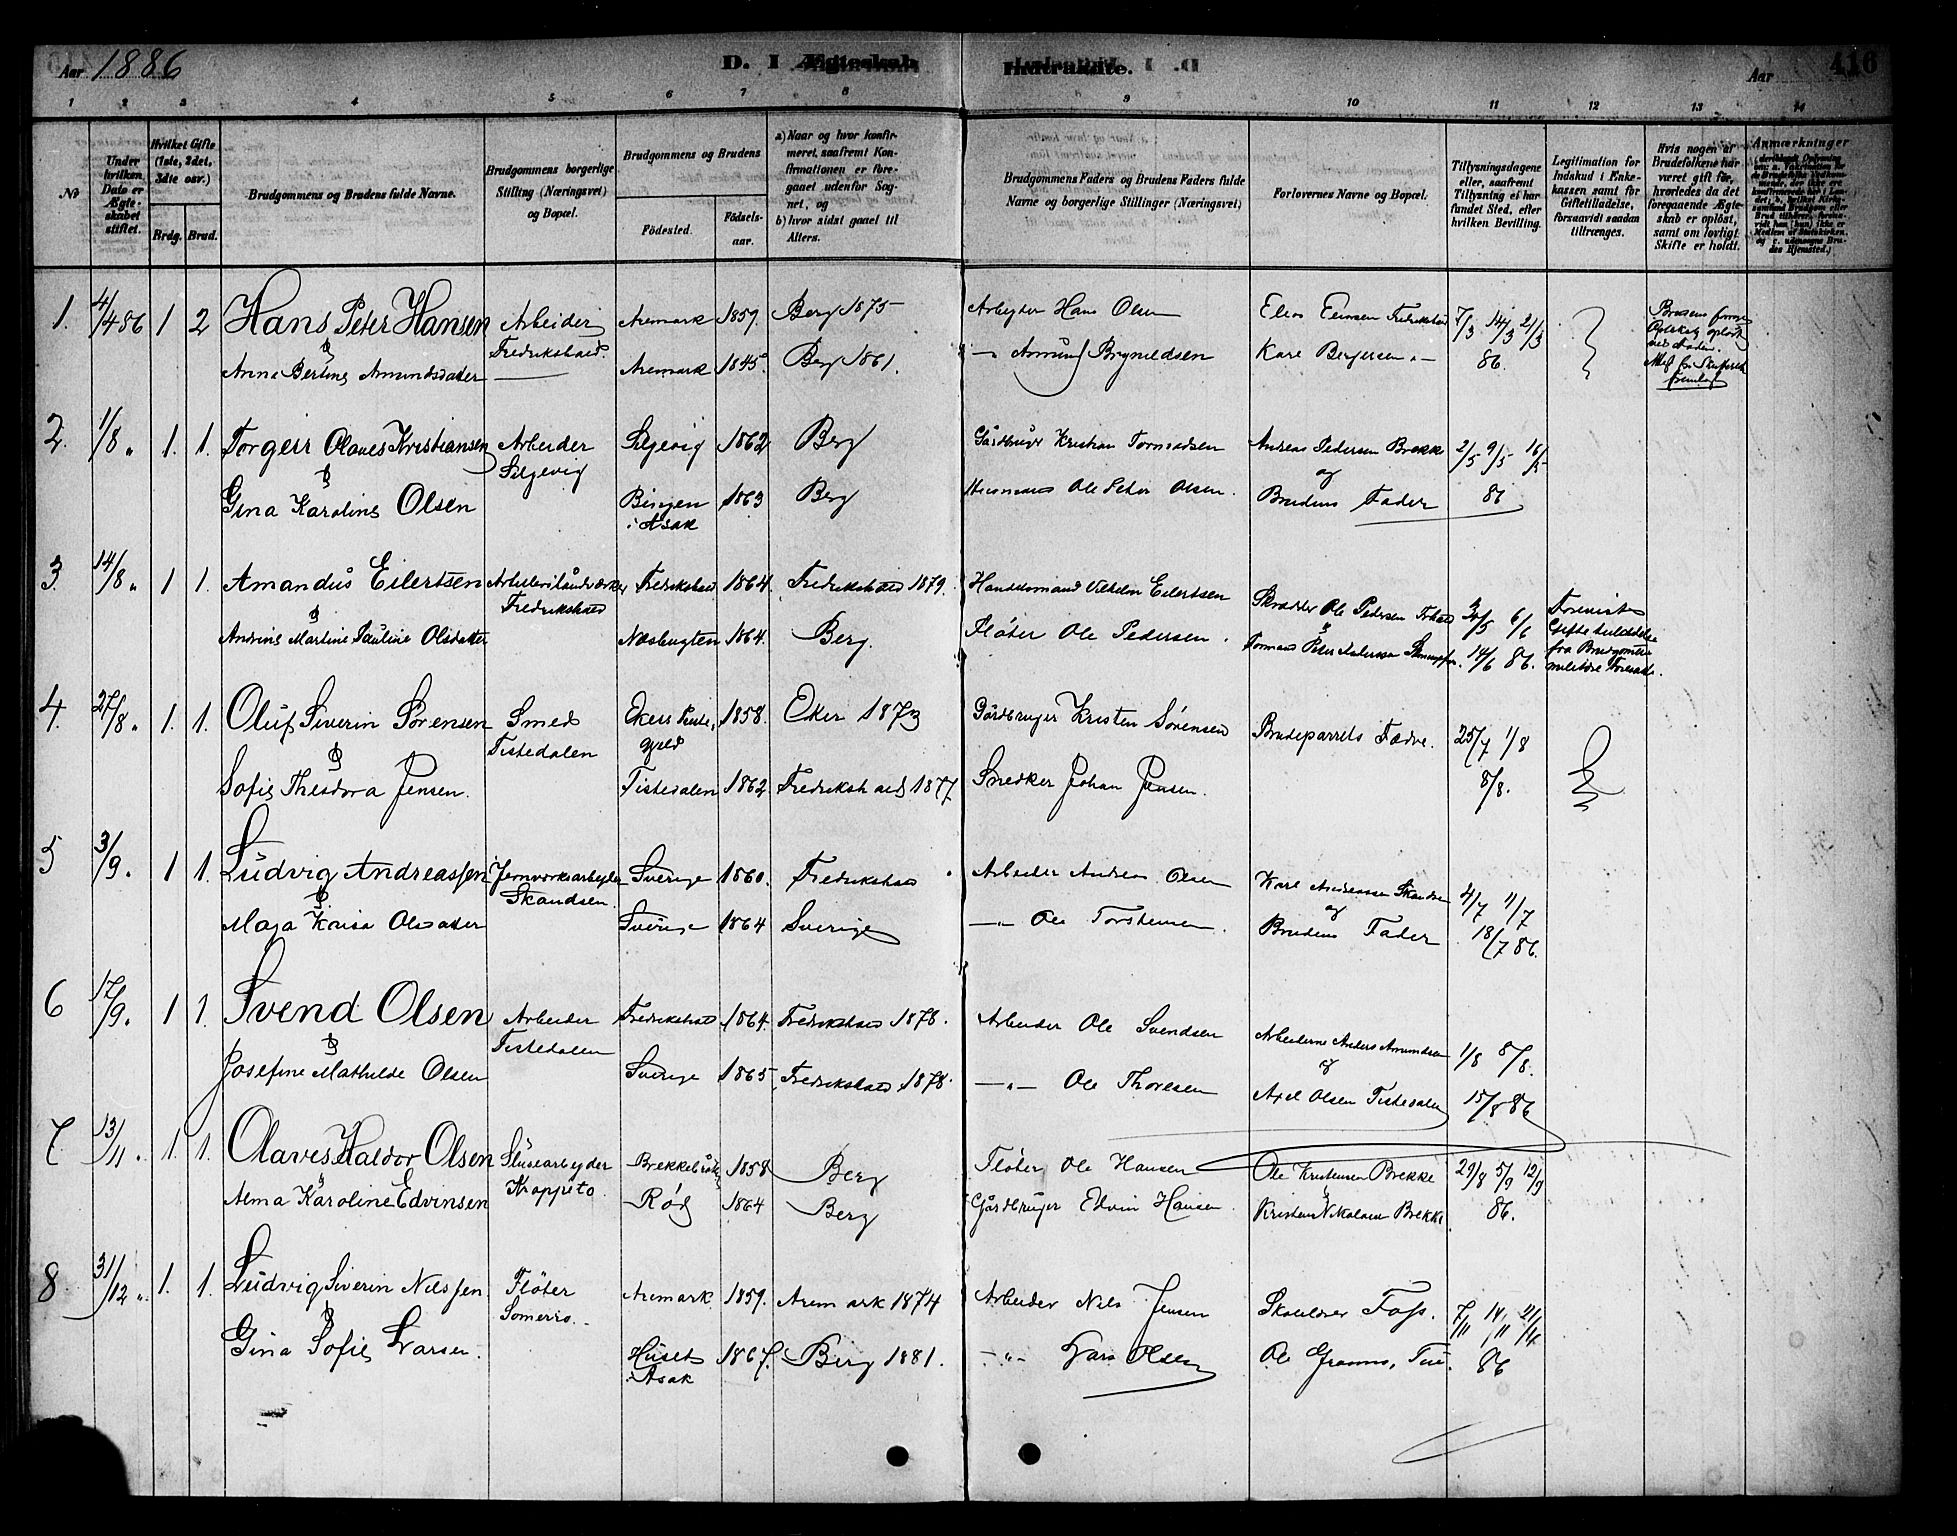 Aar 1886
D. I Ægteskab
Indtraadte.
Aar
416
1 2 3 4 5 6 7 8 9 10 11 12 13 14
No
Under hvilken Dato er Ægteskabet stiftet.
Hvilket Gifte (1ste, 2det, 3die osv.)
Brdg. Brud.
Brudgommens og Brudens fulde Navne.
Brudgommens borgerlige Stilling (Næringsvei) og Bopæl.
Brudgommens og Brudens
Fødested.
Fødselsaar.
a) Naar og hvor konfirmeret, saafremt Konfirmationen er foregaaet udenfor Sognet, og
b) hvor sidst gaaet til Alters.
Brudgommens Faders og Brudens Faders fulde Navne og borgerlige Stillinger (Næringsvei)
Forlovernes Navne og Bopæl.
Tillysningsdagene eller, saafremt Tillysning ei har fundet Sted, efter hvilken Bevilling.
Legitimation for Indskud i Enkekassen samt for Giftetilladelse, forsaavidt saadan tiltrænges.
Hvis nogen af Brudefolkene har været gift før, hvorledes da det foregaaende Ægteskab er opløst, samt om lovligt Skifte er holdt.
Anmærkninger
1. 4/4 86 1 2 Hans Peter Hansen Arbeider Aremark 1859. Berg 1875 Arbeyder Hans Olsen 7/3 14/3 21/3
& Fredrikshald.
Anna Bertine Amundsdatter Aremark 1845. Berg 1861. — Amund Brynildsen Kare Bergersen -"- 86.
2. 1/8 " 1. 1. Torgeir Olaves Kristiansen Arbeider Selgevig 1862 Berg Gårdbruger Kristian Andreas Pedersen Brekke 2/5 9/5 16/5
& Selgevig og
Gina Karoline Olsen Bingen i Asak 1863 Berg Husmand Ole Peter Olsen. Brudens Fader 86
3. 14/8 " 1 1. Amandus Eilertsen Fredrikshald 1864. Fredrikshald 1879. Vilhelm Eilertsen Skrædder Ole Pedersen 30/5 6/6
& Fredrikshald
Andrine Martine Pauline Olsdatter Næsbugten 1864. Berg. Fløter Ole Pedersen. 14/6 86.
Giftetilladelse fra Brudgommens militære Foresatte.
4. 27/8 " 1. 1. Oluf Siverin Sørensen Smed Ekers Præstegjeld 1858. Eker 1873 Gårdbruger Kristen Sørensen Brudeparrets Fædre. 25/7 1/8
& Tistedalen
Sofie Theodora Jensen. Tistedalen 1862 Fredrikshald 1877 Snedker Johan Jensen. 8/8.
5 3/9. 1 1. Ludvig Andreassen Jernværksarbeyder Sverige 1860. Fredrikshald Arbeider Andreas Olsen Karl Andreassen Skandsen 4/7 11/7
& Skandsen. og
Maja Kaisa Olsdatter Sverige 1864 Sverige —"— Ole Torstensen. Brudens Fader 18/7 86.
6 17/9. 1 1. Svend Olsen Arbeider Fredrikshald 1864. Fredrikshald 1878. Arbeider Ole Svendsen Arbeiderne Anders Amundsen 1/8 8/8.
& Tistedalen og
Josefine Mathilde Olsen Sverige 1865 Fredrikshald 1878. —"— Ole Thoresen Axel Olsen Tistedalen 15/8 86
7 13/11. 1. 1. Olaves Haldor Olsen Slusearbeyder 1858 Berg Fløter Ole Hansen Ole Kristensen Brekke 29/8 5/9 12/9
& Krappeto.
Alma Karoline Edvinsen Rød 1864 Berg Gårdbruger Edvin Hansen. Kristian Nikolaisen Brekke 86.
8. 31/12 " 1. 1. Ludvig Siverin Nilssen. Fløter Aremark. 1859. Aremark 1874 Arbeider Nils Jensen Foss. 7/11 14/11 21/11
&
Gina Sofie Larsen. Huset Asak 1867. Berg 1881. -"- Lars Olsen 86